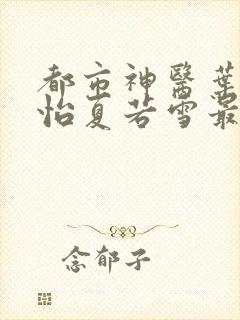 都市神醫葉
怡夏若雪最
念郁子